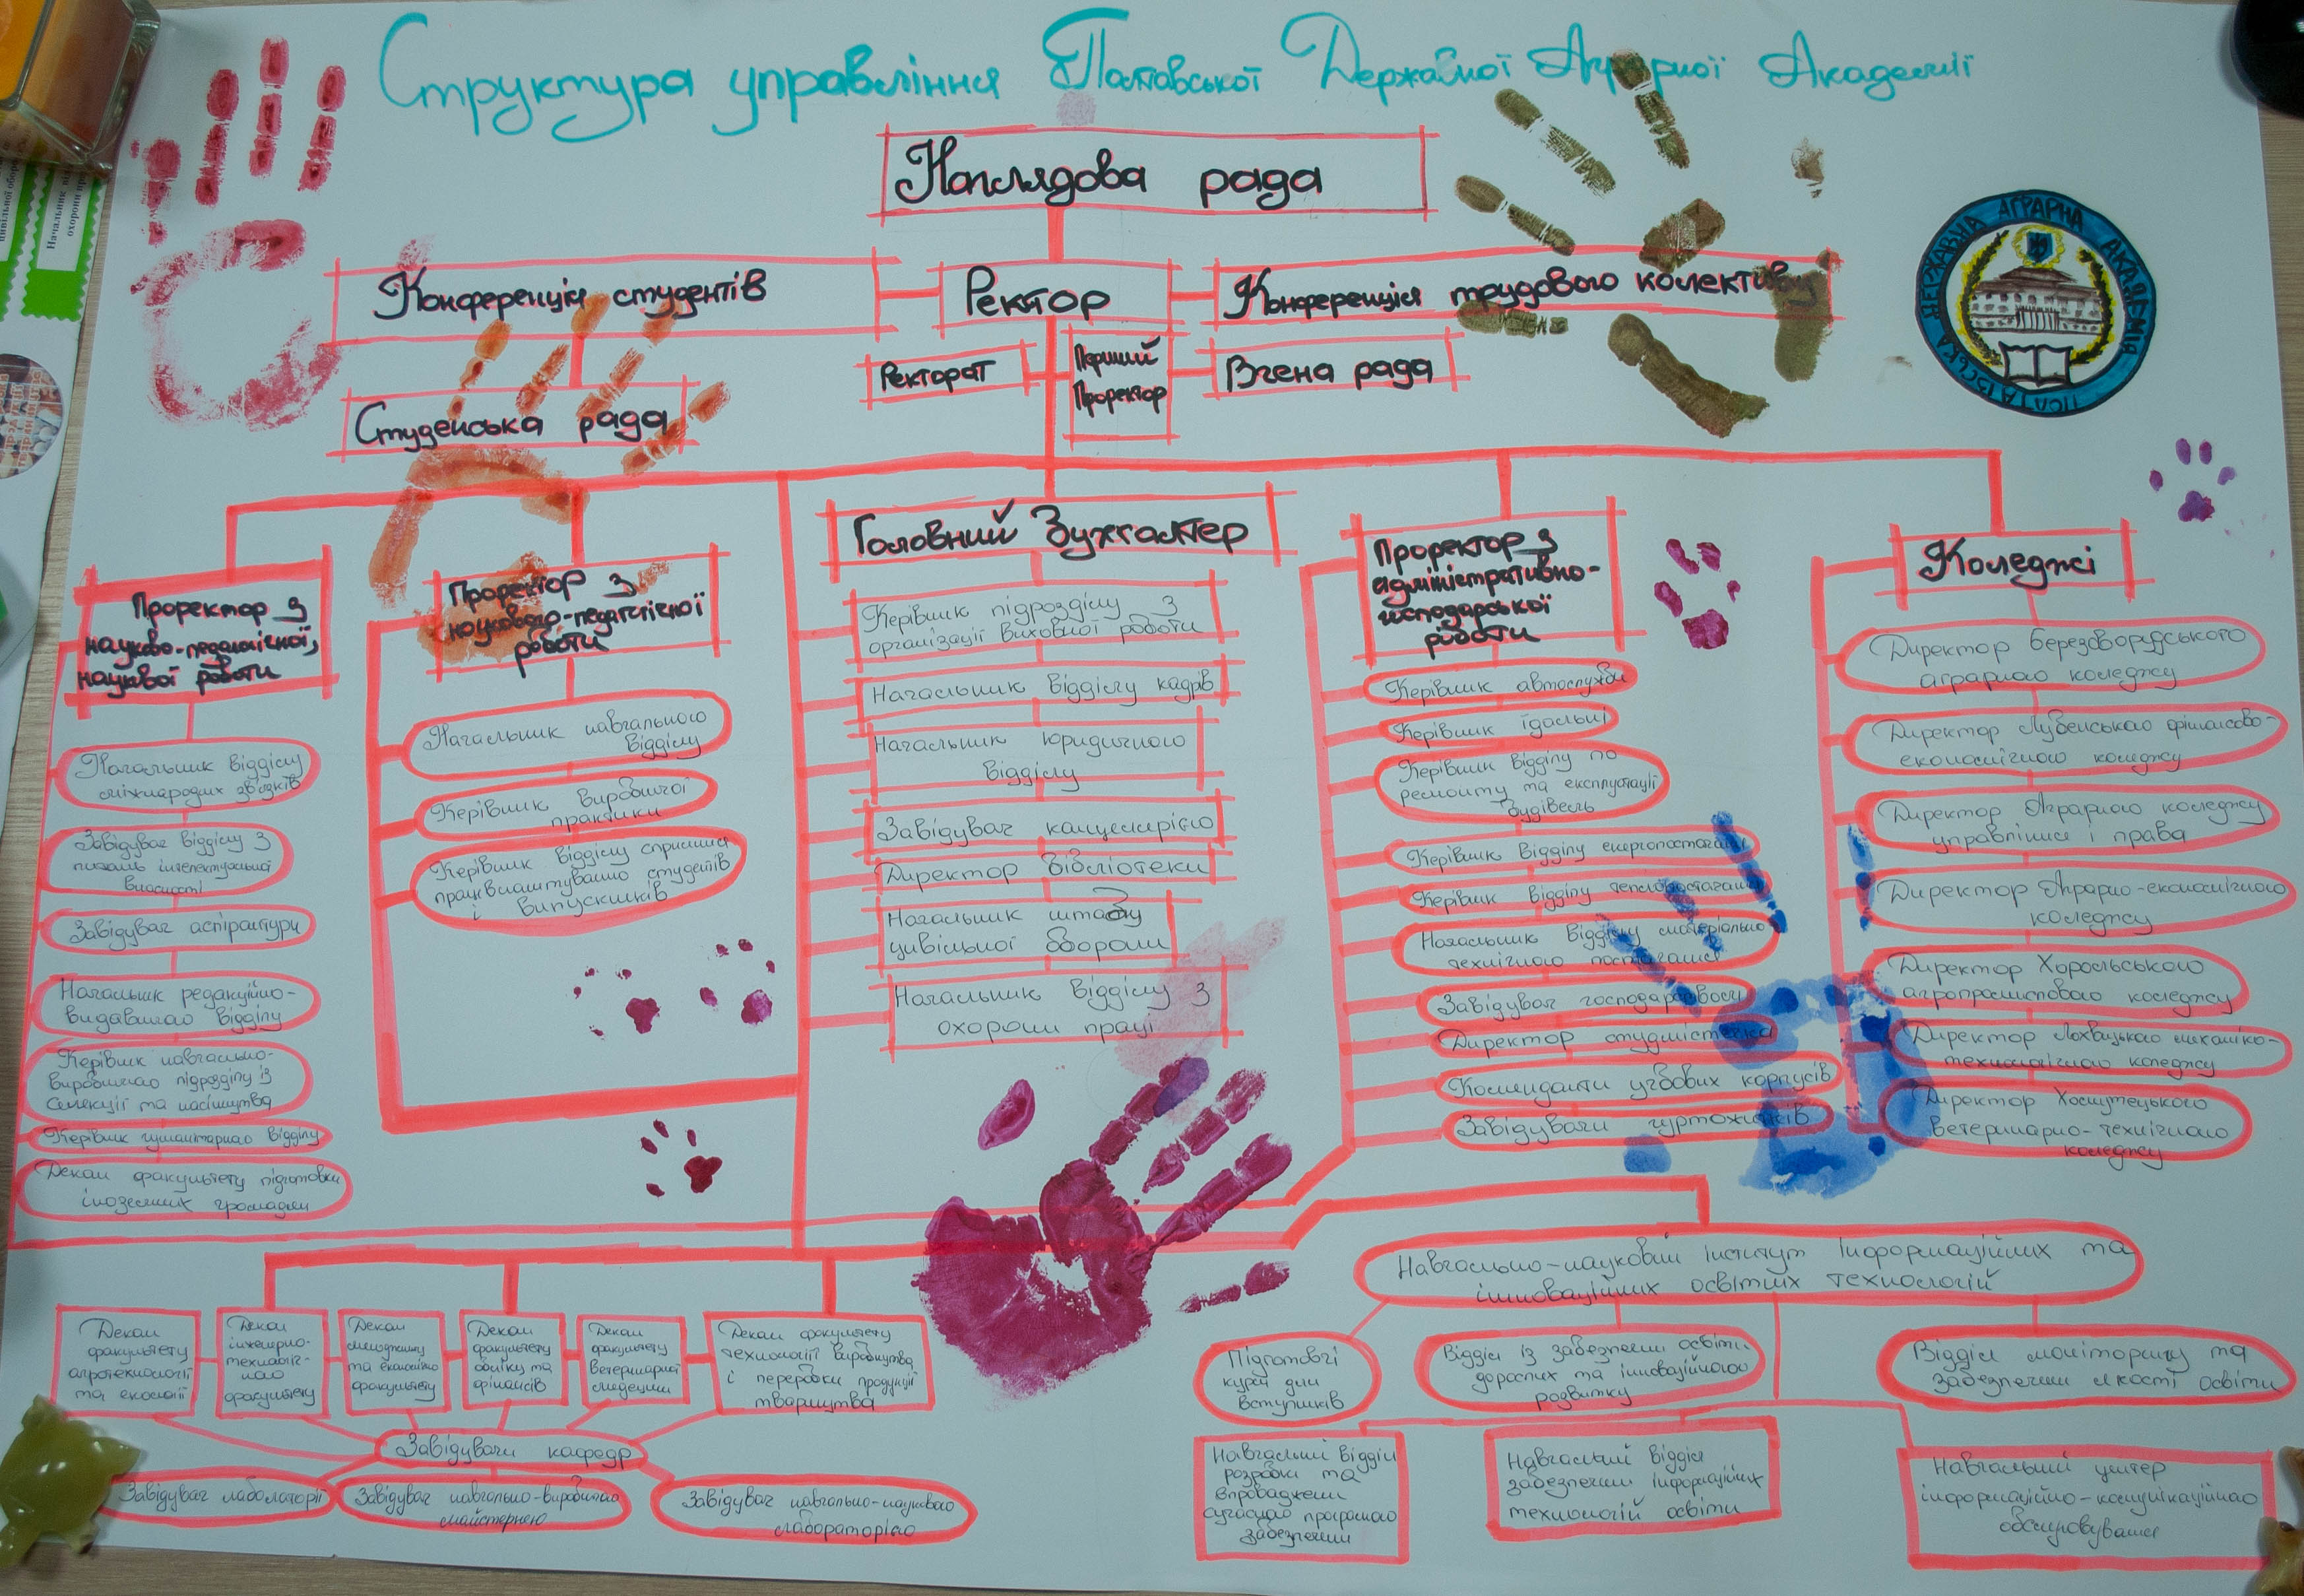 Структура управління Полтавської Державної Аграрної Академії
Наглядова рада
Конференція студентів
Ректор
Конференція трудового колективу
Ректорат
Перший
Проректор
Вчена рада
Студенська рада
ПОЛТАВСЬКА ДЕРЖАВНА АГРАРНА АКАДЕМІЯ
Проректор з
науково-педагогічної,
наукової роботи
Начальник відділу
міжнародних звязків
Завідувач відділу з
питань інтелектуальної
власності
Завідувач аспірантури
Начальник редакційно-
видавничого відділу
Керівник навчально-
виробничого підрозділу із
селекції та насінництва
Керівник гуманітарного відділу
Декан факультету підготовки
іноземних громадян
Проректор з
науково-педагогічної
роботи
Начальник навчального
відділу
Керівник виробничої
практики
Керівник відділу сприяння
працевлаштуванню студентів
і випускників
Головний Бухгалтер
Керівник підрозділу з
організації виховної роботи
Начальник відділу кадрів
Начальник юридичного
відділу
Завідувач канцелярією
Директор бібліотеки
Начальник штабу
цивільної оборони
Начальник відділу з
охорони праці
Проректор з
адміністративно-
господарської
роботи
Керівник автослужби
Керівник їдальні
Керівник відділу по
ремонту та експлуатації
будівель
Керівник відділу енергопостачання
Керівник відділу теплопостачання
Начальник відділу матеріально
технічного постачання
Завідувач господарством
Директор студмістечка
Коменданти учбових корпусів
Завідувачи гуртожитків
Коледжі
Директор Березоворудського
аграрного коледжу
Директор Лубенського фінансово-
економічного коледжу
Директор Аграрного коледжу
управління і права
Директор Аграрно-економічного
коледжу
Директор Хорольського
агропромислового коледжу
Директор Лохвицького механіко-
технологічного коледжу
Директор Хомутецького
ветеринарно-технічного
коледжу
Декан
факультету
агротехнології
та екології
Декан
інженерно-
технологіч-
ного
факультету
Декан
менеджменту
та економіки
факультету
Декан
факультету
обліку та
фінансів
Декан
факультету
ветеринарної
медецини
Декан факультету
технології виробництва
і переробки продукції
тваринництва
Завідувачи кафедр
Завідувач лаболаторії
Завідувач навчально-виробничою
майстернею
Завідувач навчально-наукового
лабораторією
Навчально-науковий інститут інформаційних та
інноваційних освітніх технологій
Підготовчі
курси для
вступників
Відділ із забезпечення освіти
дорослих та інноваційного
розвитку
Відділ моніторингу та
забезпечення якості освіти
Навчальний відділ
розробки та
впровадження
сучасного програмного
забезпечення
Навчальний відділ
забезпечення інформаційних
технологій освіти
Навчальний центер
інформаційно-комунікаційного
обслуговування